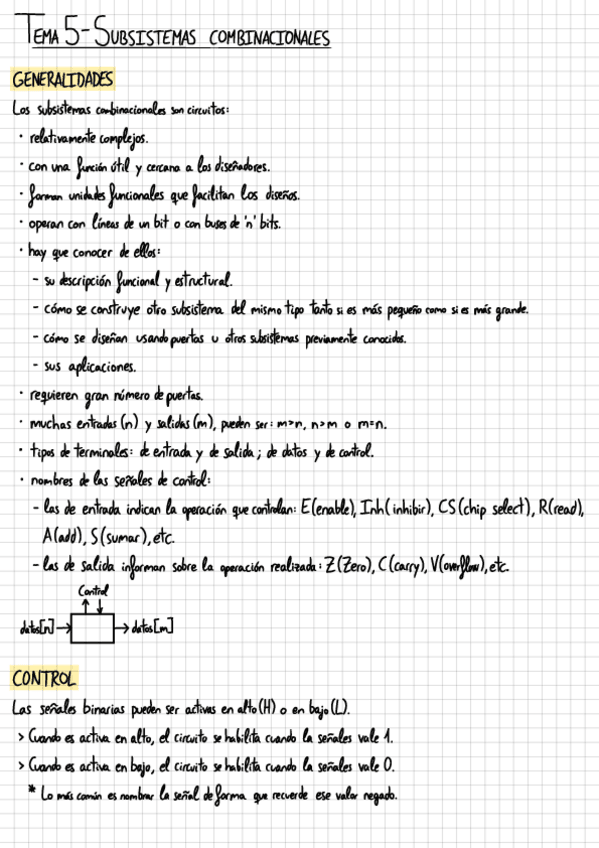 TEMA 5 - SUBSISTEMAS COMBINACIONALES
GENERALIDADES
Los subsistemas combinacionales son circuitos:
· relativamente complejos.
· con una función útil y cercana a los diseñadores.
· forman unidades funcionales que facilitan los diseños.
· operan con líneas de un bit o con buses de 'n' bits.
· hay que conocer de ellos:
- su descripción funcional y estructural.
- cómo se construye otro subsistema del mismo tipo tanto si es más pequeño como si es más grande.
- cómo se diseñan usando puertas u otros subsistemas previamente conocidos.
- sus aplicaciones.
· requieren gran número de puertas.
· muchas entradas (n) y salidas (m), pueden ser: m>n, n>m o m=n.
· tipos de terminales: de entrada y de salida; de datos y de control.
· nombres de las señales de control:
- las de entrada indican la operación que controlan: E(enable), Inh(inhibir), CS(chip select), R(read),
A(add), S(sumar), etc.
- las de salida informan sobre la operación realizada: Z(Zero), C(carry), V(overflow), etc.
Control
datos[n] → → datos[m]
CONTROL
Las señales binarias pueden ser activas en alto (H) o en bajo (L).
> Cuando es activa en alto, el circuito se habilita cuando la señales vale 1.
> Cuando es activa en bajo, el circuito se habilita cuando la señales vale 0.
* Lo más común es nombrar la señal de forma que recuerde ese valor negado.